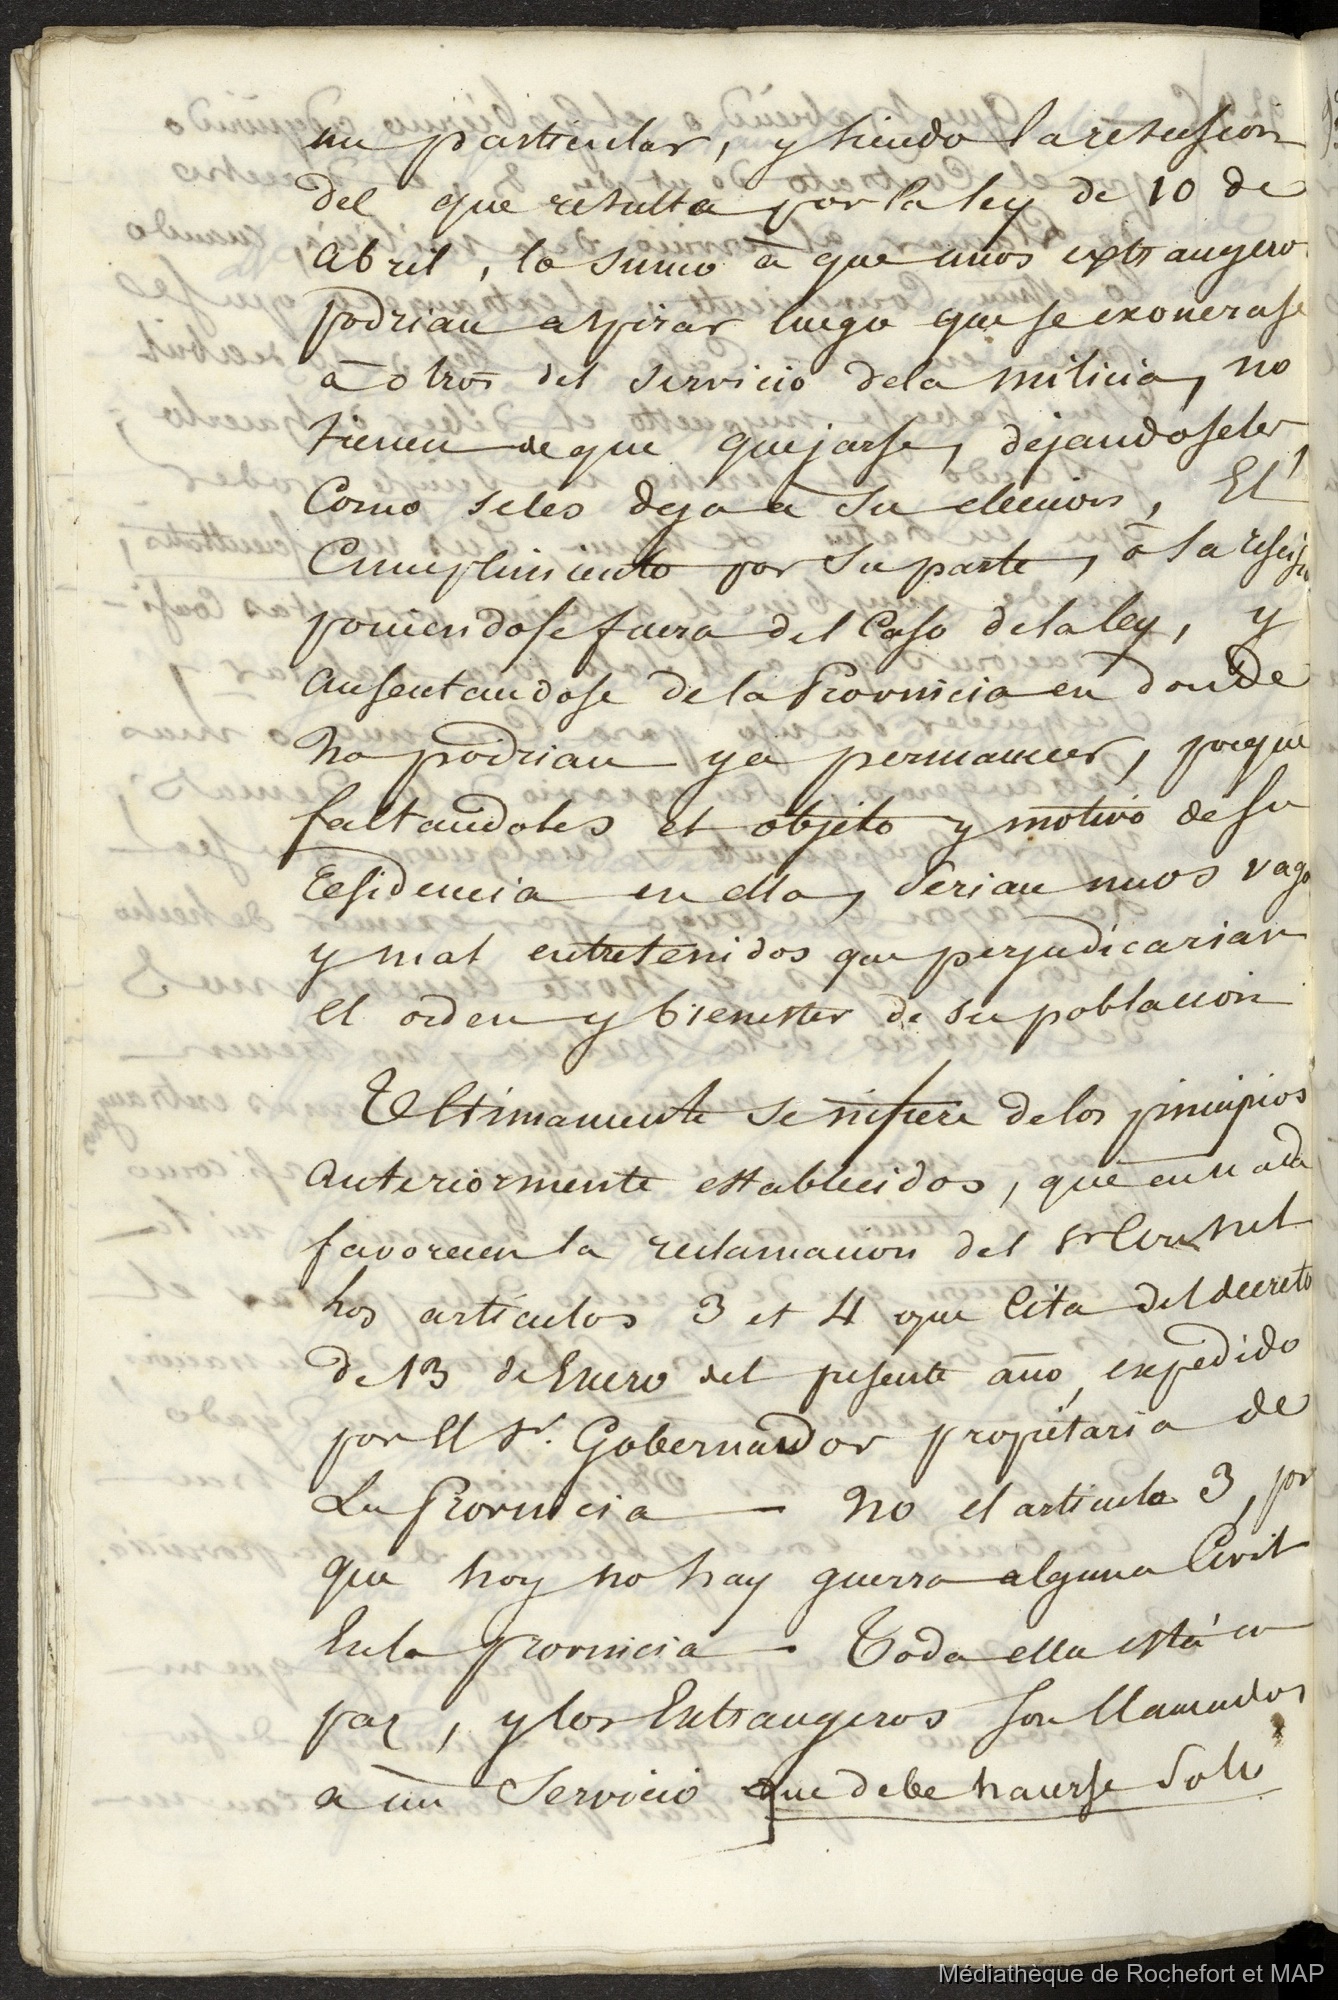 un particular, y siendo la resesion
del que resulta por la ley de 10 de
Abril, lo sumo à que unos extrangero
podrian aspirar luego que se exonerase
à otros del servicio dela milicia, no
tienen de que quejarse, dejandoseles
Como seles deja a su eleccion, El
Cumplimiento por su parte, ò la resis
poniendose fuera del Caso dela ley, y
ausentandose de la Provincia en donde
no podrian ya permanecer, porque
faltandoles el objeto y motivo de su
residencia en ella, serian unos vago
y mal entretenidos que perjudicarian
el orden y bienester de su poblacion
Ultimamente se infiere de los principios
anteriormente establecidos, que en nada
favorecen la reclamacion del Sr Consul
los articulos 3 et 4 que Cita del decreto
de 13 de Enero del presente año, expedido
por El Sr. Gobernador propietario de
La Provincia — No el articulo 3, por
que hoy no hay guerra alguna Civil
En la provincia — Toda ella está en
paz, y los Extrangeros son llamados
a un Servicio que debe hacerse Solo
Médiathèque de Rochefort et MAP